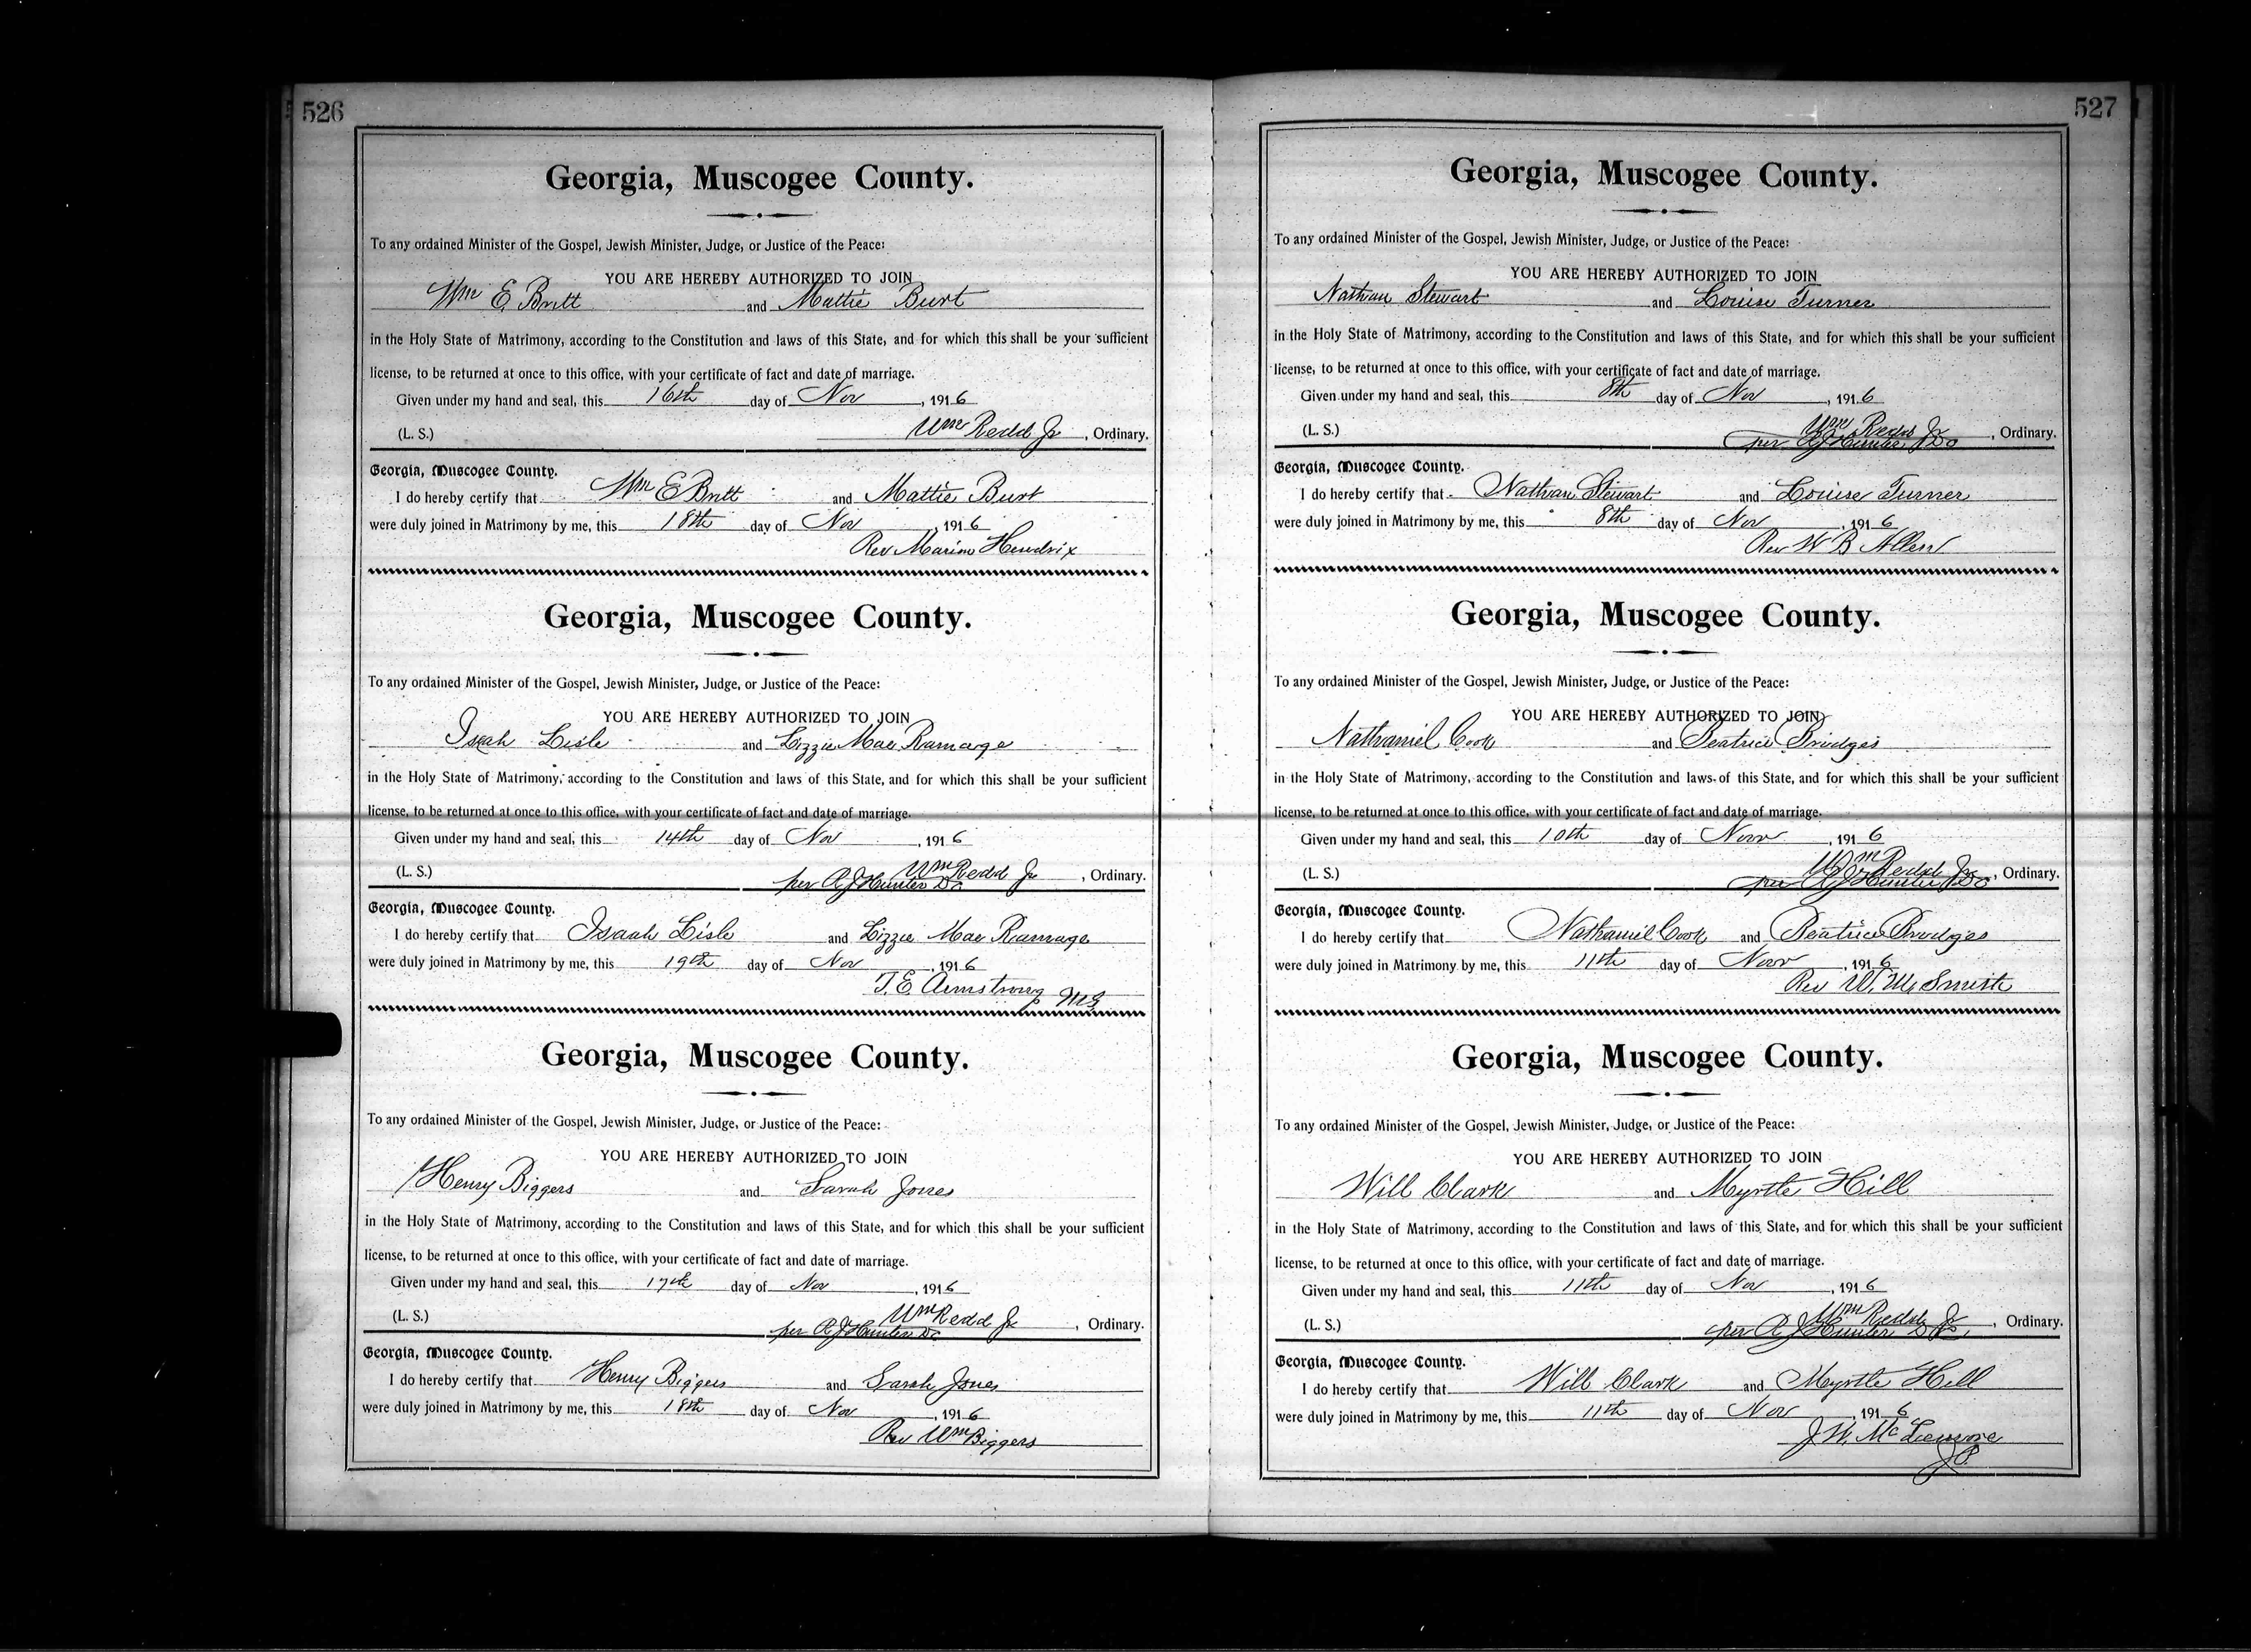 526
Georgia, Muscogee County.
To any ordained Minister of the Gospel, Jewish Minister, Judge, or Justice of the Peace:
YOU ARE HEREBY AUTHORIZED TO JOIN
Wm E. Britt and Mattie Burt
in the Holy State of Matrimony, according to the Constitution and laws of this State, and for which this shall be your sufficient
license, to be returned at once to this office, with your certificate of fact and date of marriage.
Given under my hand and seal, this 16th day of Nov, 1916
(L. S.) Wm Redd Jr, Ordinary.
Georgia, Muscogee County.
I do hereby certify that Wm E Britt and Mattie Burt
were duly joined in Matrimony by me, this 18th day of Nov, 1916
Rev Marion Hendrix
Georgia, Muscogee County.
To any ordained Minister of the Gospel, Jewish Minister, Judge, or Justice of the Peace:
YOU ARE HEREBY AUTHORIZED TO JOIN
Isah Lisle and Lizzie Mae Ramage
in the Holy State of Matrimony, according to the Constitution and laws of this State, and for which this shall be your sufficient
license, to be returned at once to this office, with your certificate of fact and date of marriage.
Given under my hand and seal, this 14th day of Nov, 1916
Wm Redd Jr
(L. S.) per R J Hunter DC, Ordinary.
Georgia, Muscogee County.
I do hereby certify that Isaah Lisle and Lizzie Mae Ramage
were duly joined in Matrimony by me, this 19th day of Nov, 1916
T. E. Armstrong MG
Georgia, Muscogee County.
To any ordained Minister of the Gospel, Jewish Minister, Judge, or Justice of the Peace:
YOU ARE HEREBY AUTHORIZED TO JOIN
Henry Biggers and Sarah Jones
in the Holy State of Matrimony, according to the Constitution and laws of this State, and for which this shall be your sufficient
license, to be returned at once to this office, with your certificate of fact and date of marriage.
Given under my hand and seal, this 17th day of Nov, 1916
Wm Redd Jr
(L. S.) per R J Hunter DC, Ordinary.
Georgia, Muscogee County.
I do hereby certify that Henry Biggers and Sarah Jones
were duly joined in Matrimony by me, this 18th day of Nov, 1916
Rev Wm Biggers
527
Georgia, Muscogee County.
To any ordained Minister of the Gospel, Jewish Minister, Judge, or Justice of the Peace:
YOU ARE HEREBY AUTHORIZED TO JOIN
Nathan Stewart and Louise Turner
in the Holy State of Matrimony, according to the Constitution and laws of this State, and for which this shall be your sufficient
license, to be returned at once to this office, with your certificate of fact and date of marriage.
Given under my hand and seal, this 8th day of Nov, 1916
Wm Redd Jr
(L. S.) per R J Hunter DC, Ordinary.
Georgia, Muscogee County.
I do hereby certify that Nathan Stewart and Louise Turner
were duly joined in Matrimony by me, this 8th day of Nov, 1916
Rev W B Allen
Georgia, Muscogee County.
To any ordained Minister of the Gospel, Jewish Minister, Judge, or Justice of the Peace:
YOU ARE HEREBY AUTHORIZED TO JOIN
Nathaniel Cook and Beatrice Bridges
in the Holy State of Matrimony, according to the Constitution and laws of this State, and for which this shall be your sufficient
license, to be returned at once to this office, with your certificate of fact and date of marriage.
Given under my hand and seal, this 10th day of Novr, 1916
Wm Redd Jr
(L. S.) per R J Hunter DC, Ordinary.
Georgia, Muscogee County.
I do hereby certify that Nathaniel Cook and Beatrice Bridges
were duly joined in Matrimony by me, this 11th day of Novr, 1916
Rev W. M. Smith
Georgia, Muscogee County.
To any ordained Minister of the Gospel, Jewish Minister, Judge, or Justice of the Peace:
YOU ARE HEREBY AUTHORIZED TO JOIN
Will Clark and Myrtle Hill
in the Holy State of Matrimony, according to the Constitution and laws of this State, and for which this shall be your sufficient
license, to be returned at once to this office, with your certificate of fact and date of marriage.
Given under my hand and seal, this 11th day of Nov, 1916
Wm Redd Jr
(L. S.) per R J Hunter DC, Ordinary.
Georgia, Muscogee County.
I do hereby certify that Will Clark and Myrtle Hill
were duly joined in Matrimony by me, this 11th day of Nov, 1916
J. W. McLemore
JP